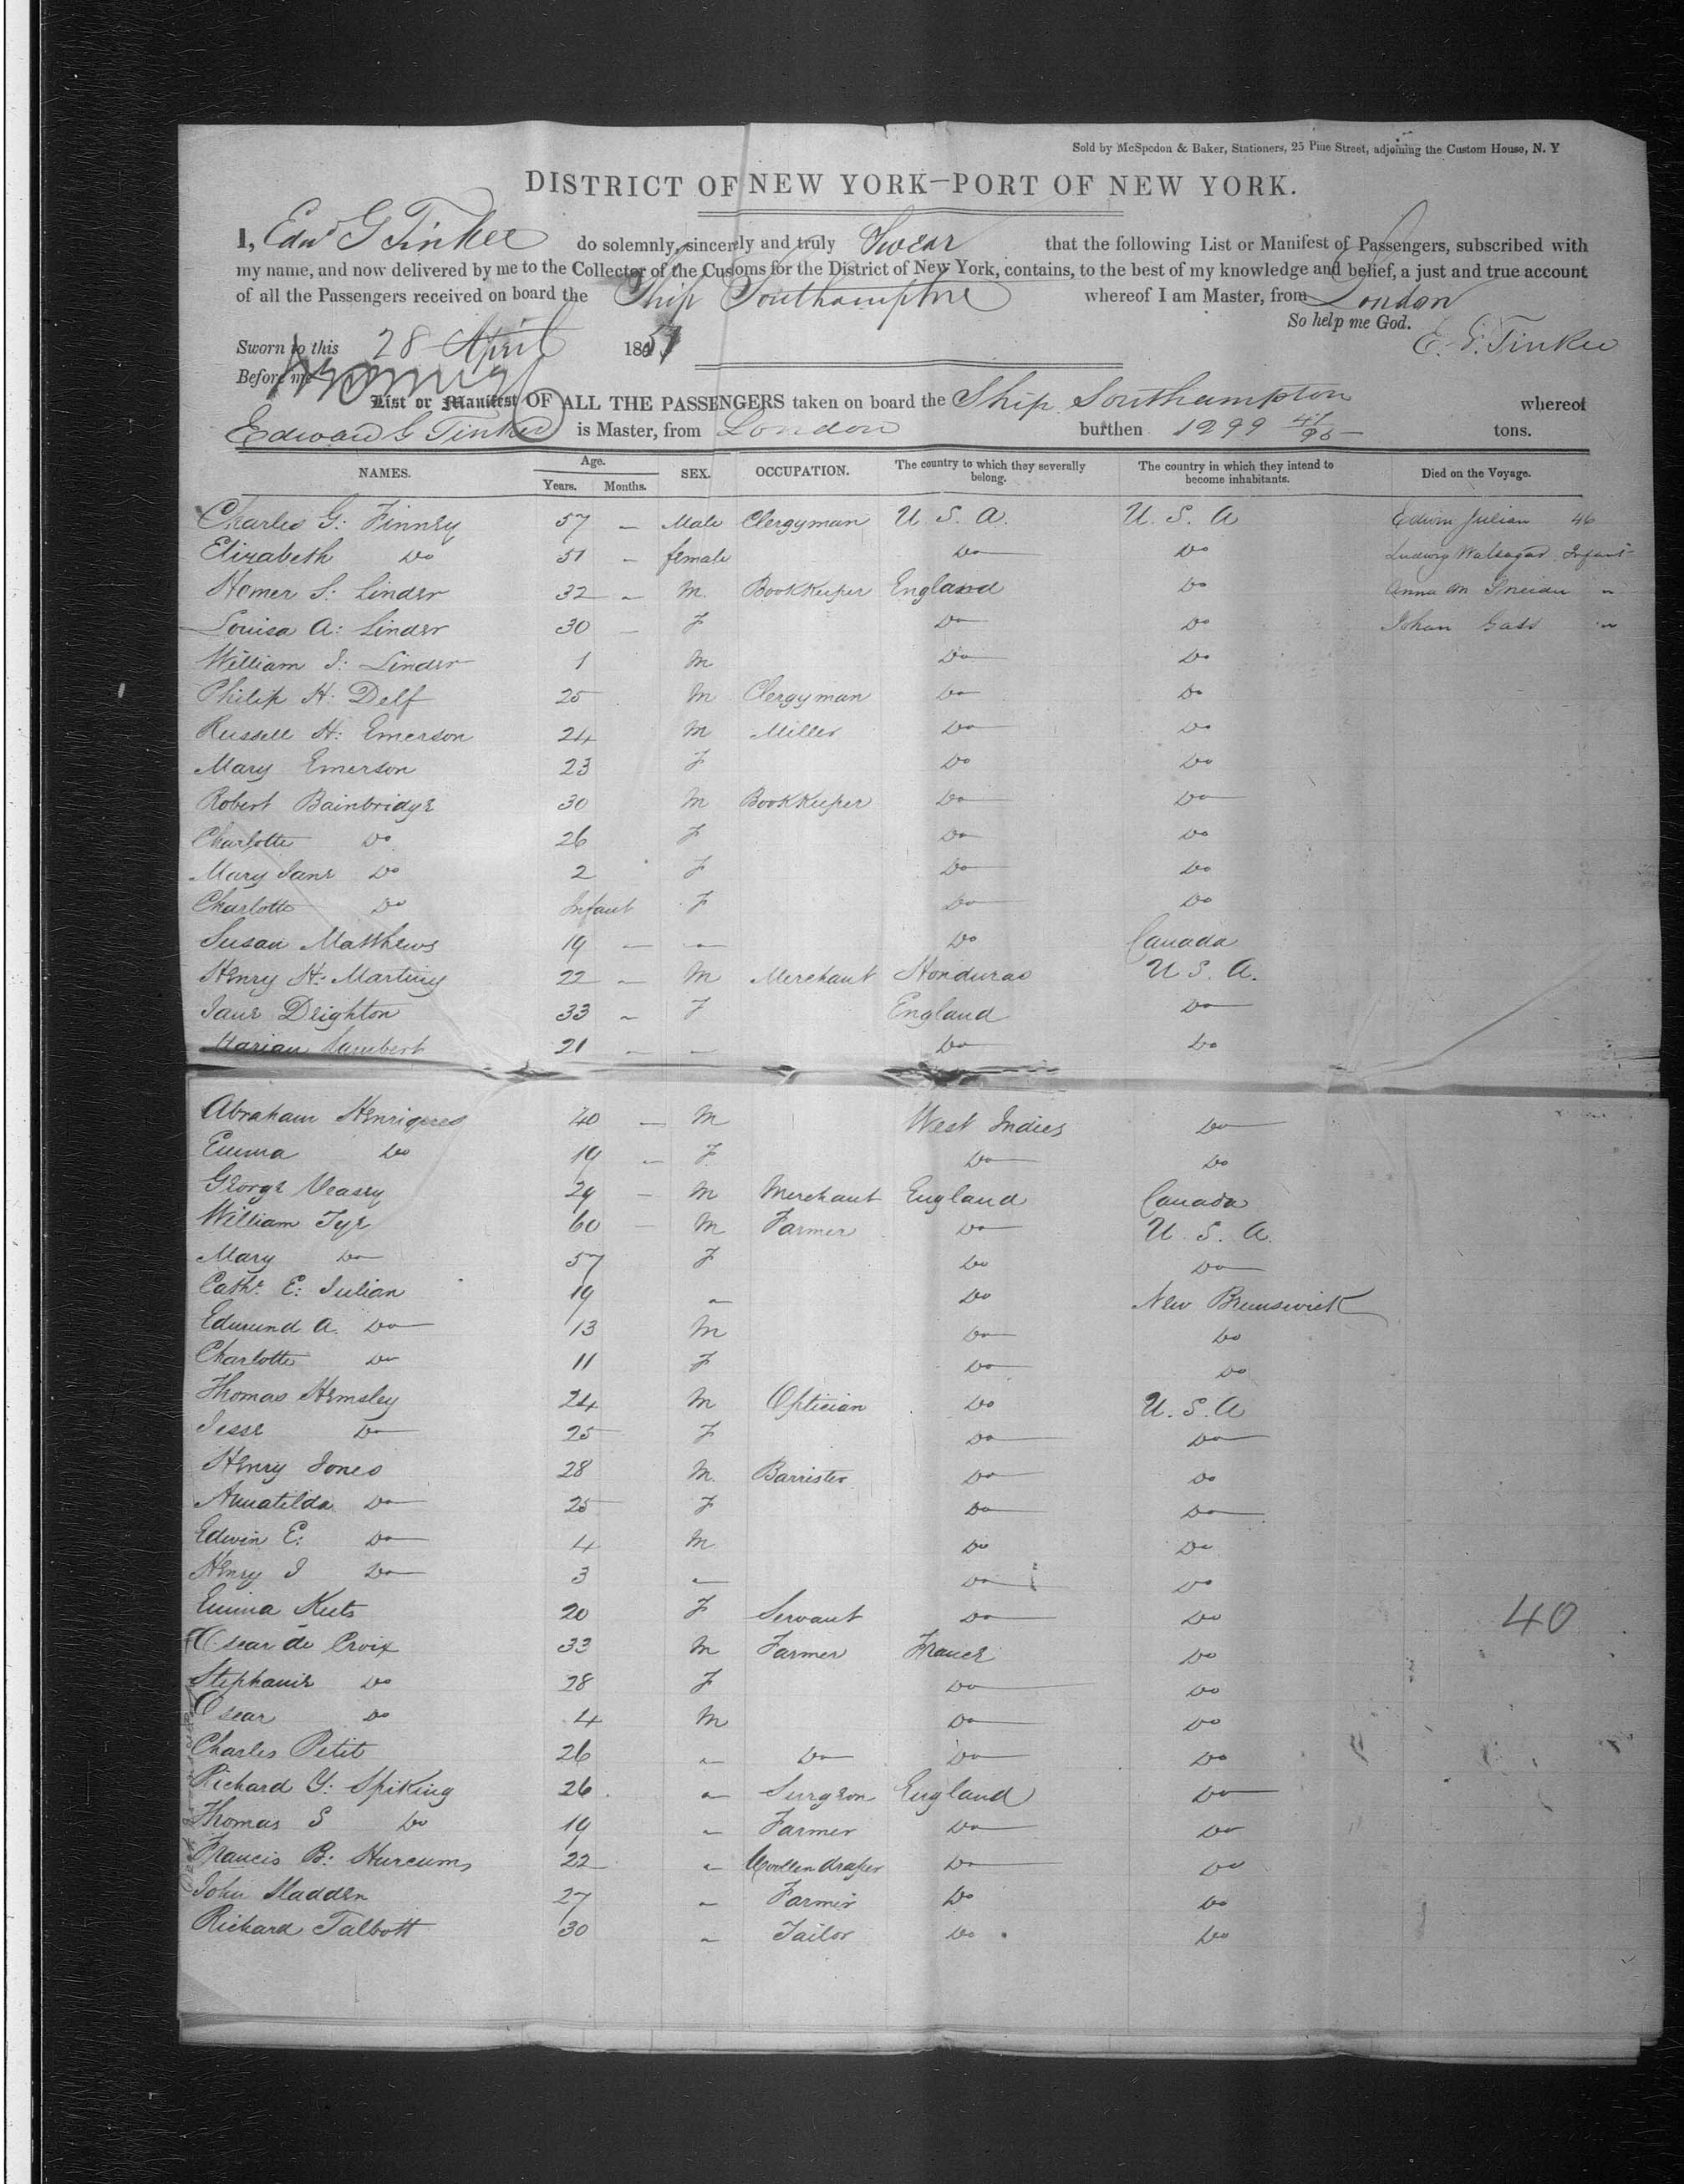 Sold by McSpedon & Baker, Stationers, 25 Pine Street, adjoining the Custom House, N. Y
DISTRICT OF NEW YORK—PORT OF NEW YORK.
I, Edwd G Tinker do solemnly, sincerely and truly Swear that the following List or Manifest of Passengers, subscribed with
my name, and now delivered by me to the Collector of the Customs for the District of New York, contains, to the best of my knowledge and belief, a just and true account
of all the Passengers received on board the Ship Southampton whereof I am Master, from London
So help me God.
Sworn to this 28 April 1851 E. G. Tinker
Before me
List or Manifest OF ALL THE PASSENGERS taken on board the Ship Southampton whereof
Edward G Tinker is Master, from London burthen 1299 41/95 tons.
NAMES. Age. Years. Months. SEX. OCCUPATION. The country to which they severally belong. The country in which they intend to become inhabitants. Died on the Voyage.
Charles G: Finney 57 – Male Clergyman U. S. A. U. S. A Edwin Julian 46
Elizabeth Do 51 – female Do Do Ludwig Infant
Homer S: Linder 32 – M. Bookkeeper England Do Anna M "
Louisa A: Linder 30 – F Do Do Johan Gass "
William J: Linder 1 M Do Do
Philip H: Delf 25 M Clergyman Do Do
Russell H: Emerson 24 M Miller Do Do
Mary Emerson 23 F Do Do
Robert Bainbridge 30 M Bookkeeper Do Do
Charlotte Do 26 F Do Do
Mary Jane Do 2 F Do Do
Charlotte Do Infant F Do Do
Susan Matthews 19 – " Do Canada
Henry H: Martiny 22 – M Merchant Honduras U S. A.
Jane Deighton 33 – F England Do
Marian Lambert 21 – " Do Do
Abraham Henriques 40 – M West Indies Do
Emma Do 19 – F. Do Do
George Veasey 29 – M Merchant England Canada
William Tye 60 – M Farmer Do U. S. A.
Mary Do 57 F Do Do
Cathe. E: Julian 19 " Do New Brunswick
Edmund A. Do 13 M Do Do
Charlotte Do 11 F Do Do
Thomas Hemsley 24 M Optician Do U. S. A
Jesse Do 25 F Do Do
Henry Jones 28 M. Barrister Do Do
Annatilda Do 25 F Do Do
Edwin E: Do 4 M Do Do
Henry J Do 3 " Do Do
Emma Keets 20 F Servant Do Do 40
Oscar de Croix 33 M Farmer France Do
Stephanie Do 28 F Do Do
Oscar Do 4 M Do Do
Charles Petit 26 " Do Do Do
Richard Y. Spiking 26 " Surgeon England Do
Thomas S Do 19 " Farmer Do Do
Francis B: Hurcum 22 " Woollen draper Do Do
John Madden 27 " Farmer Do Do
Richard Talbott 30 " Tailor Do Do